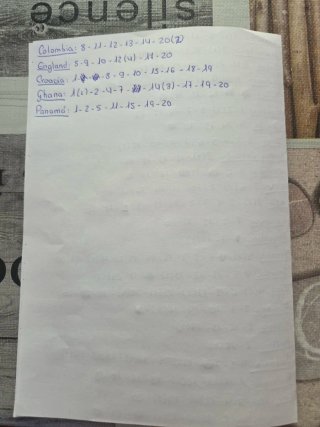 silence
Colombia: 8 - 11 - 12 - 13 - 14 - 20(2)
England: 5 - 9 - 10 - 12(4) - 19 - 20
Croacia: 8 - 9 - 10 - 15 - 16 - 18 - 19
Ghana: 1(2) - 2 - 4 - 7 - 14(3) - 17 - 19 - 20
Panamá: 1 - 2 - 5 - 11 - 15 - 19 - 20